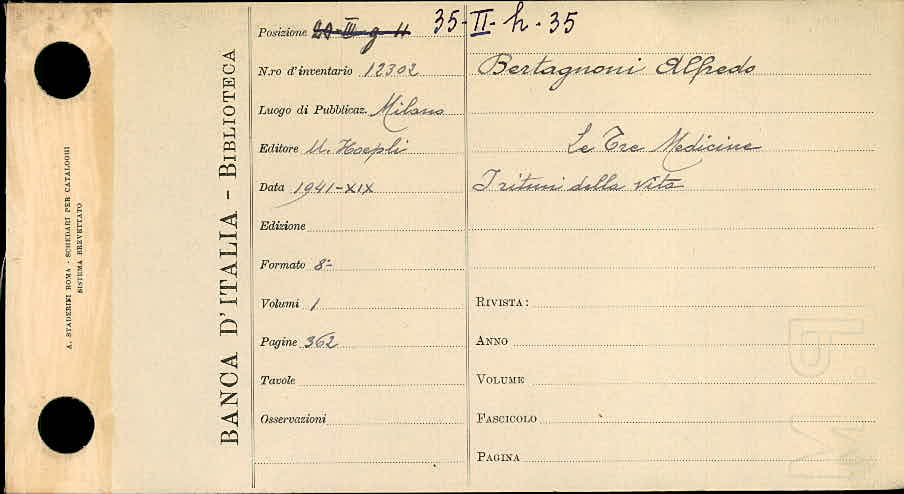 A. STADERINI ROMA - SCHEDARI PER CATALOGHI
SISTEMA BREVETTATO
BANCA D'ITALIA - BIBLIOTECA
Posizione 20-III-g-11 35-II-h-35
N.ro d'inventario 12302
Luogo di Pubblicaz. Milano
Editore U. Hoepli
Data 1941-XIX
Edizione
Formato 8-
Volumi 1
Pagine 362
Tavole
Osservazioni
Bertagnoni Alfredo
Le Tre Medicine
I ritmi della vita
RIVISTA:
ANNO
VOLUME
FASCICOLO
PAGINA